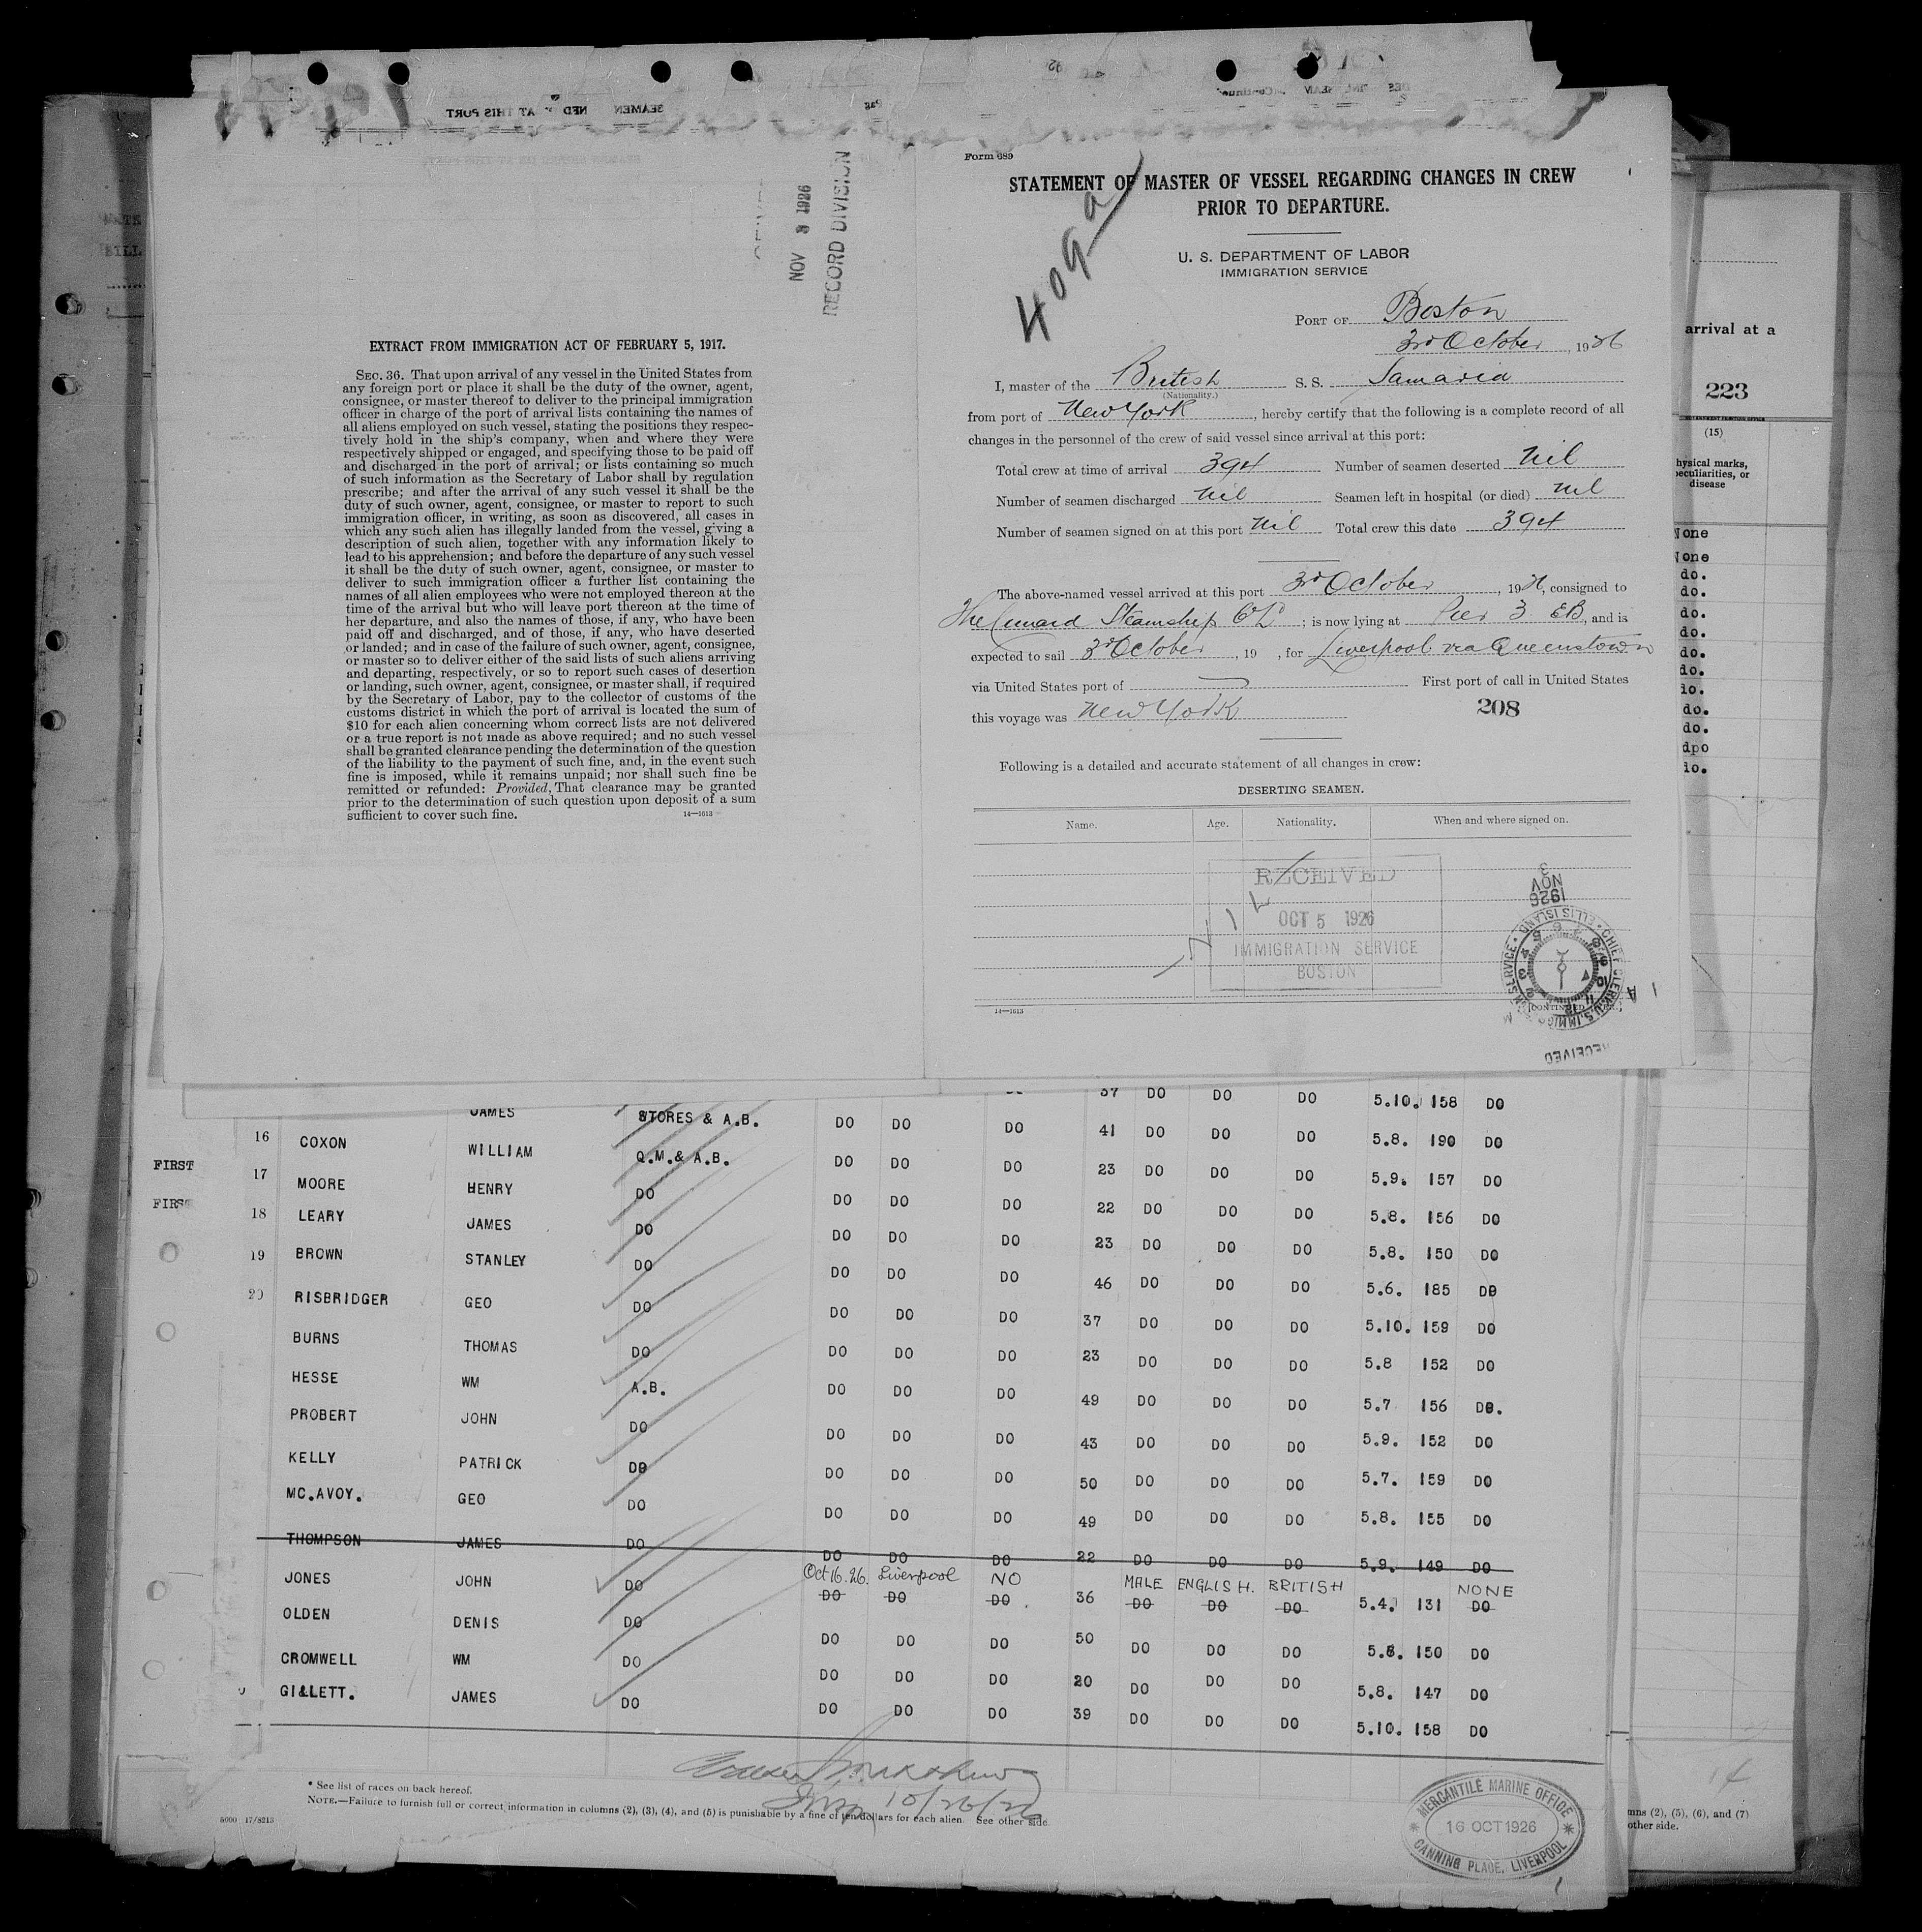 SEAMEN NED AT THIS PORT
NOV 3 1926
RECORD DIVISION
EXTRACT FROM IMMIGRATION ACT OF FEBRUARY 5, 1917.
SEC. 36. That upon arrival of any vessel in the United States from
any foreign port or place it shall be the duty of the owner, agent,
consignee, or master thereof to deliver to the principal immigration
officer in charge of the port of arrival lists containing the names of
all aliens employed on such vessel, stating the positions they respec-
tively hold in the ship's company, when and where they were
respectively shipped or engaged, and specifying those to be paid off
and discharged in the port of arrival; or lists containing so much
of such information as the Secretary of Labor shall by regulation
prescribe; and after the arrival of any such vessel it shall be the
duty of such owner, agent, consignee, or master to report to such
immigration officer, in writing, as soon as discovered, all cases in
which any such alien has illegally landed from the vessel, giving a
description of such alien, together with any information likely to
lead to his apprehension; and before the departure of any such vessel
it shall be the duty of such owner, agent, consignee, or master to
deliver to such immigration officer a further list containing the
names of all alien employees who were not employed thereon at the
time of the arrival but who will leave port thereon at the time of
her departure, and also the names of those, if any, who have been
paid off and discharged, and of those, if any, who have deserted
or landed; and in case of the failure of such owner, agent, consignee,
or master so to deliver either of the said lists of such aliens arriving
and departing, respectively, or so to report such cases of desertion
or landing, such owner, agent, consignee, or master shall, if required
by the Secretary of Labor, pay to the collector of customs of the
customs district in which the port of arrival is located the sum of
$10 for each alien concerning whom correct lists are not delivered
or a true report is not made as above required; and no such vessel
shall be granted clearance pending the determination of the question
of the liability to the payment of such fine, and, in the event such
fine is imposed, while it remains unpaid; nor shall such fine be
remitted or refunded: Provided, That clearance may be granted
prior to the determination of such question upon deposit of a sum
sufficient to cover such fine.
14—1613
Form 689
STATEMENT OF MASTER OF VESSEL REGARDING CHANGES IN CREW
PRIOR TO DEPARTURE.
409 a
U. S. DEPARTMENT OF LABOR
IMMIGRATION SERVICE
PORT OF Boston
3rd October, 1926
I, master of the British S. S. Samaria
(Nationality.)
from port of New York, hereby certify that the following is a complete record of all
changes in the personnel of the crew of said vessel since arrival at this port:
Total crew at time of arrival 394 Number of seamen deserted Nil
Number of seamen discharged Nil Seamen left in hospital (or died) Nil
Number of seamen signed on at this port Nil Total crew this date 394
The above-named vessel arrived at this port 3rd October, 1926, consigned to
The Cunard Steamship Co Ld; is now lying at Pier 3 EB, and is
expected to sail 3rd October, 19 , for Liverpool via Queenstown
via United States port of First port of call in United States
this voyage was New York 208
Following is a detailed and accurate statement of all changes in crew:
DESERTING SEAMEN.
Name. Age. Nationality. When and where signed on.
NIL
RECEIVED
OCT 5 1926
IMMIGRATION SERVICE
BOSTON
1926
NOV
3
CHIEF CLERK, U.S. IMMIG
ELLIS ISLAND
RECEIVED
14—1613
arrival at a
223
(15)
hysical marks,
peculiarities, or
disease
None
None
do.
do.
do.
do.
do.
do.
do.
do.
do.
dpo
do.
JAMES STORES & A.B. DO DO DO 37 DO DO DO 5.10. 158 DO
16 COXON WILLIAM Q.M.& A.B. DO DO DO 41 DO DO DO 5.8. 190 DO
FIRST
17 MOORE HENRY DO DO DO DO 23 DO DO DO 5.9. 157 DO
FIRST
18 LEARY JAMES DO DO DO DO 22 DO DO DO 5.8. 156 DO
19 BROWN STANLEY DO DO DO DO 23 DO DO DO 5.8. 150 DO
20 RISBRIDGER GEO DO DO DO DO 46 DO DO DO 5.6. 185 DO
BURNS THOMAS DO DO DO DO 37 DO DO DO 5.10. 159 DO
HESSE WM A.B. DO DO DO 23 DO DO DO 5.8 152 DO
PROBERT JOHN DO DO DO DO 49 DO DO DO 5.7 156 DO.
KELLY PATRICK DO DO DO DO 43 DO DO DO 5.9. 152 DO
MC.AVOY. GEO DO DO DO DO 50 DO DO DO 5.7. 159 DO
DO DO DO 49 DO DO DO 5.8. 155 DO
THOMPSON JAMES DO DO DO DO 22 DO DO DO 5.9. 149 DO
Oct 16.26. Liverpool NO MALE ENGLISH. BRITISH NONE
JONES JOHN DO DO DO DO 36 DO DO DO 5.4. 131 DO
OLDEN DENIS DO DO DO DO 50 DO DO DO 5.8. 150 DO
CROMWELL WM DO DO DO DO 20 DO DO DO 5.8. 147 DO
GILLETT. JAMES DO DO DO DO 39 DO DO DO 5.10. 158 DO
10/26/26
* See list of races on back hereof.
NOTE.—Failure to furnish full or correct information in columns (2), (3), (4), and (5) is punishable by a fine of ten dollars for each alien. See other side.
5000 17/8213
MERCANTILE MARINE OFFICE
16 OCT 1926
CANNING PLACE, LIVERPOOL
mns (2), (5), (6), and (7)
other side.